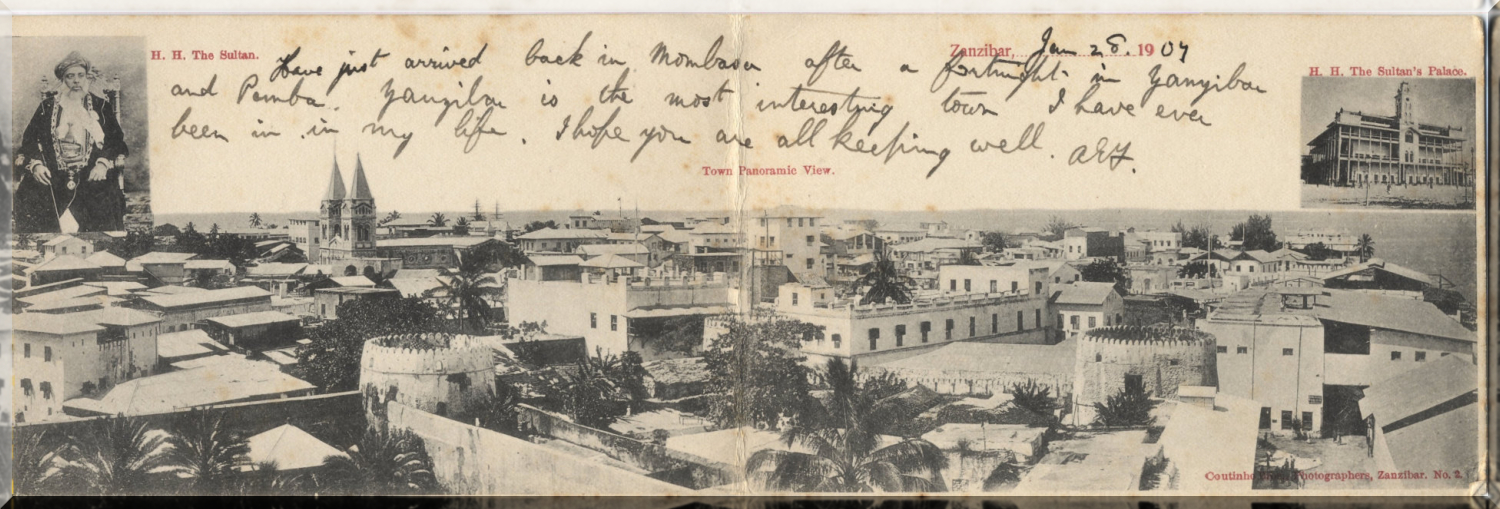 Zanzibar, Jan 28. 1907
H. H. The Sultan.
H. H. The Sultan's Palace.
Have just arrived back in Mombasa after a fortnight in Zanzibar
and Pemba. Zanzibar is the most interesting town I have ever
been in in my life. I hope you are all keeping well.
Town Panoramic View.
Coutinho Photographers, Zanzibar. No. 2.